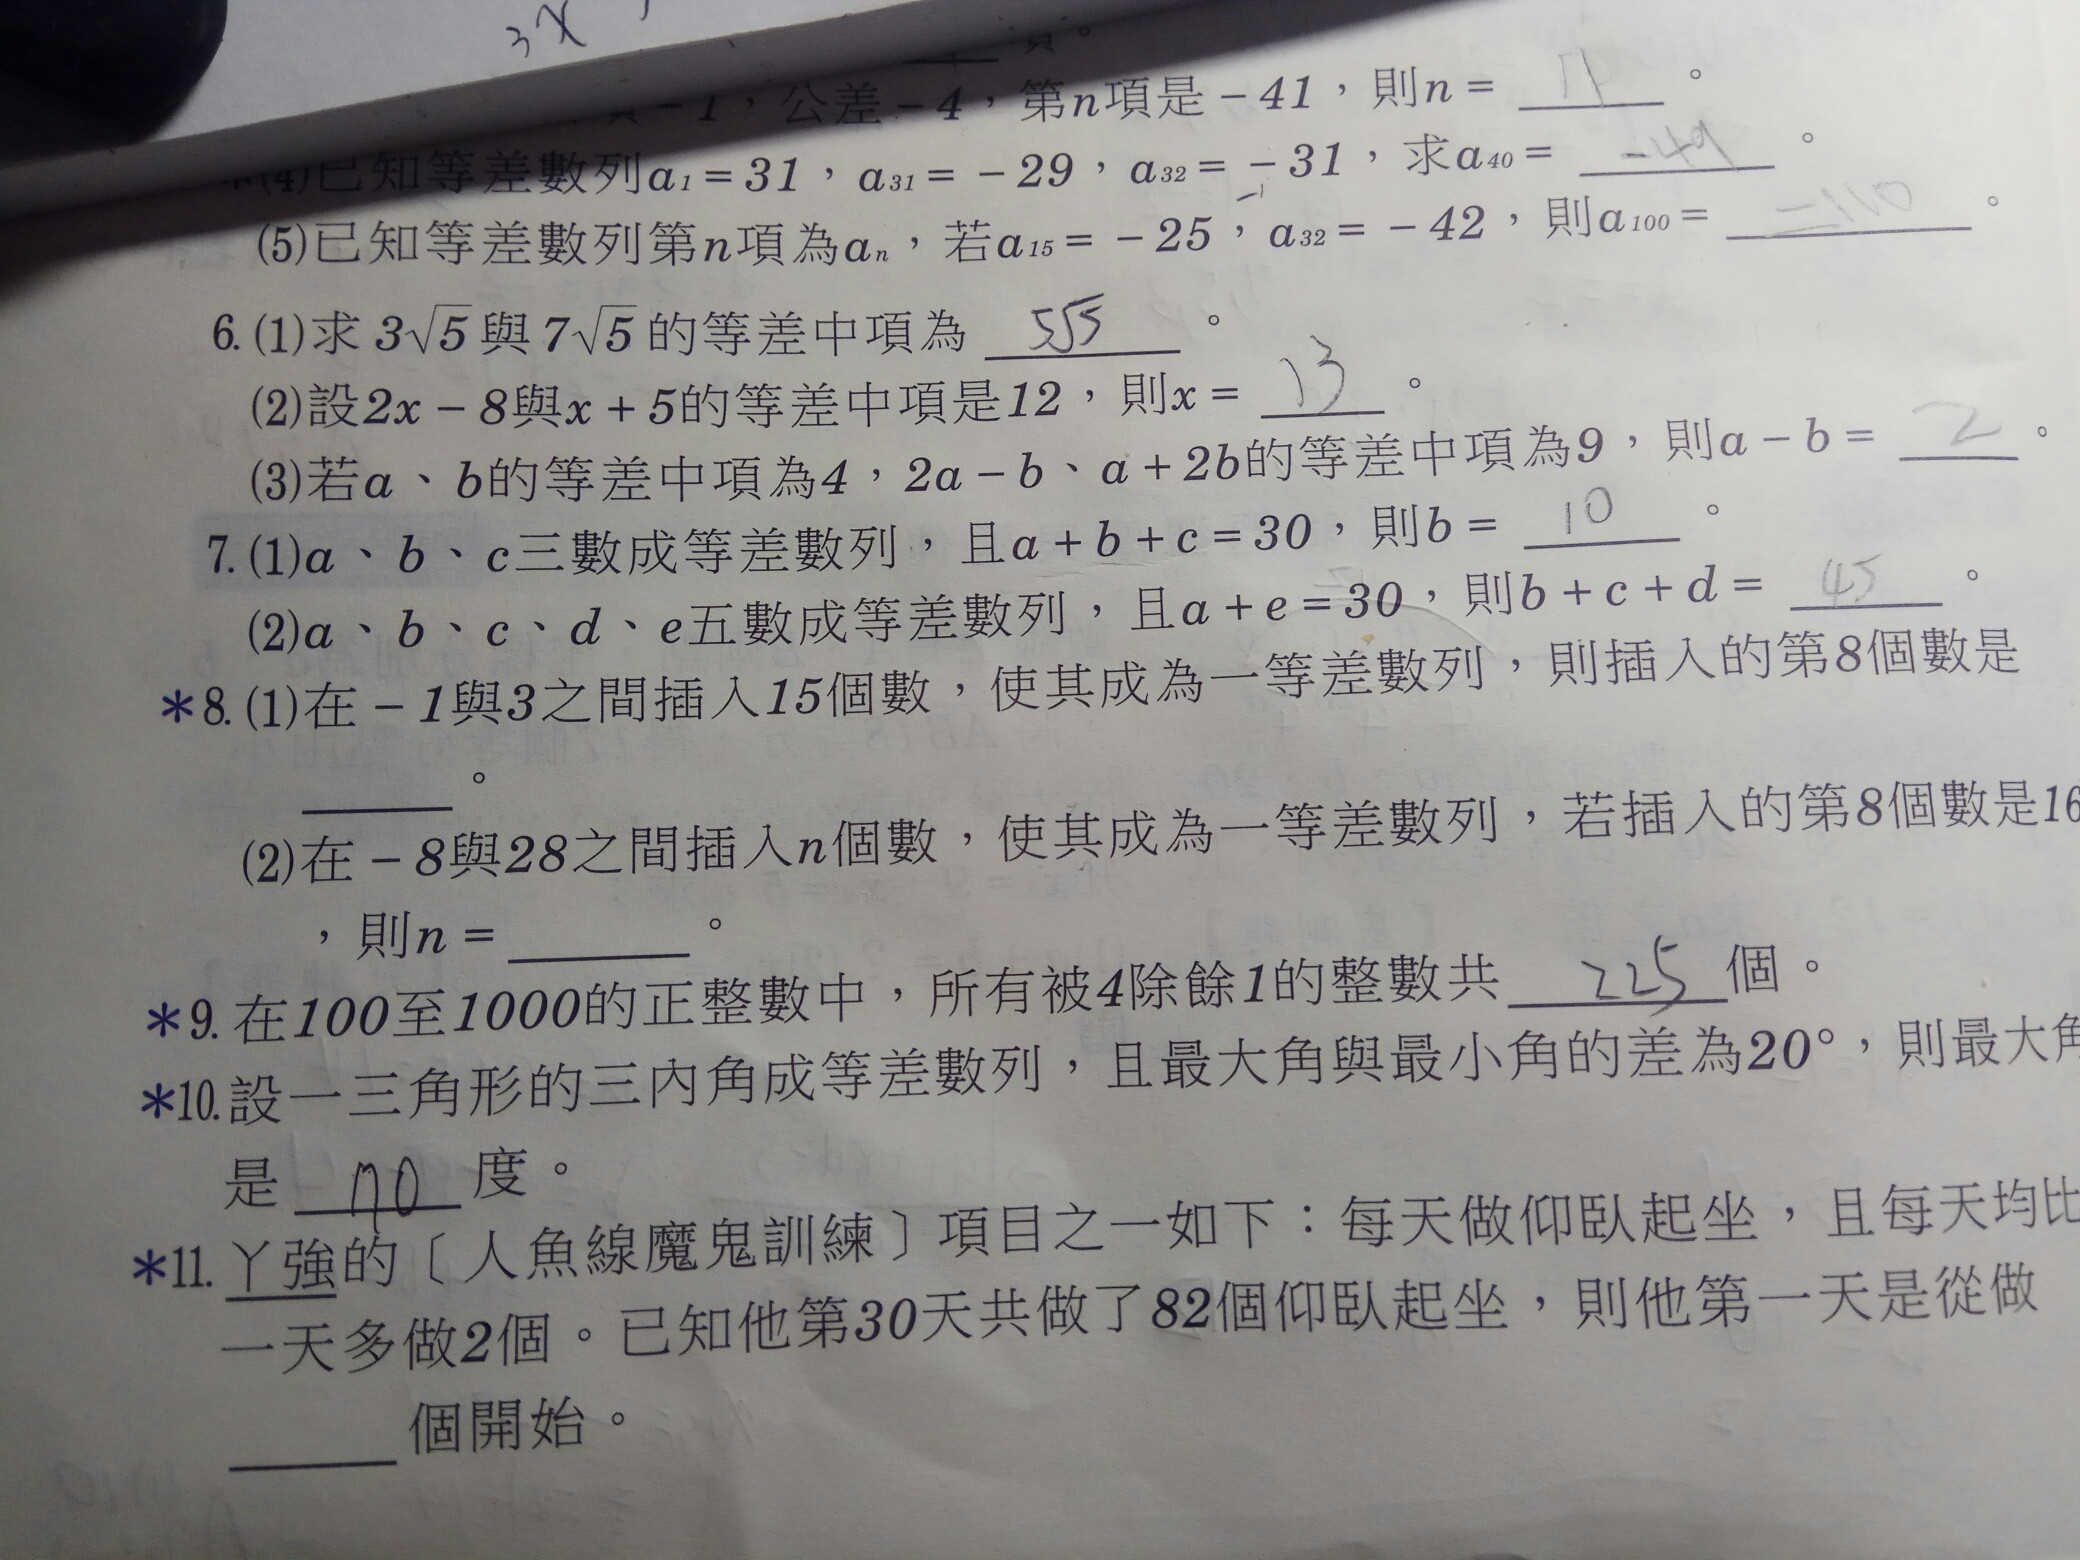 3x
項。
項-1，公差-4，第n項是-41，則n= 11 。
(4)已知等差數列a1=31，a31=-29，a32=-31，求a40= -49 。
(5)已知等差數列第n項為an，若a15=-25，a32=-42，則a100= -110 。
6.(1)求3√5與7√5的等差中項為 5√5 。
(2)設2x-8與x+5的等差中項是12，則x= 13 。
(3)若a、b的等差中項為4，2a-b、a+2b的等差中項為9，則a-b= 2 。
7.(1)a、b、c三數成等差數列，且a+b+c=30，則b= 10 。
(2)a、b、c、d、e五數成等差數列，且a+e=30，則b+c+d= 45 。
*8.(1)在-1與3之間插入15個數，使其成為一等差數列，則插入的第8個數是
。
(2)在-8與28之間插入n個數，使其成為一等差數列，若插入的第8個數是16
，則n= 。
*9.在100至1000的正整數中，所有被4除餘1的整數共 225 個。
*10.設一三角形的三內角成等差數列，且最大角與最小角的差為20°，則最大角
是 70 度。
*11.丫強的〔人魚線魔鬼訓練〕項目之一如下：每天做仰臥起坐，且每天均比
一天多做2個。已知他第30天共做了82個仰臥起坐，則他第一天是從做
個開始。